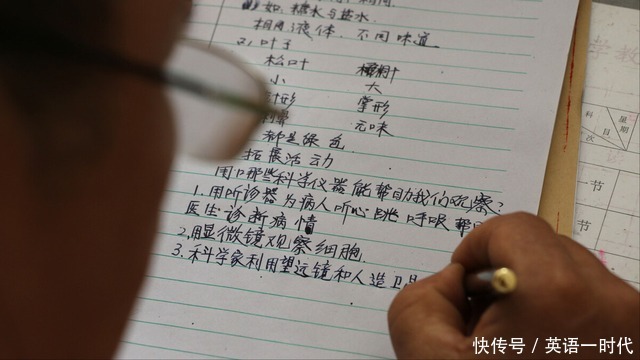 如:糖水与盐水.
相同:液体,不同味道
2.叶子
松叶
小 大
针形 掌形
刺鼻 无味
都是绿色.
拓展活动
用哪些科学仪器能帮助我们观察?
1.用听诊器为病人听心跳呼吸帮
医生诊断病情
2.用显微镜观察细胞.
3.科学家利用望远镜和人造卫
学教
科目
星期
次
一节
一节
快传号 / 英语一时代